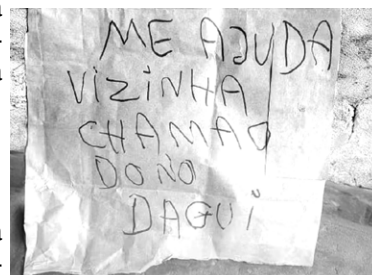 ME AJUDA
VIZINHA
CHAMA O
DONO
DAQUI